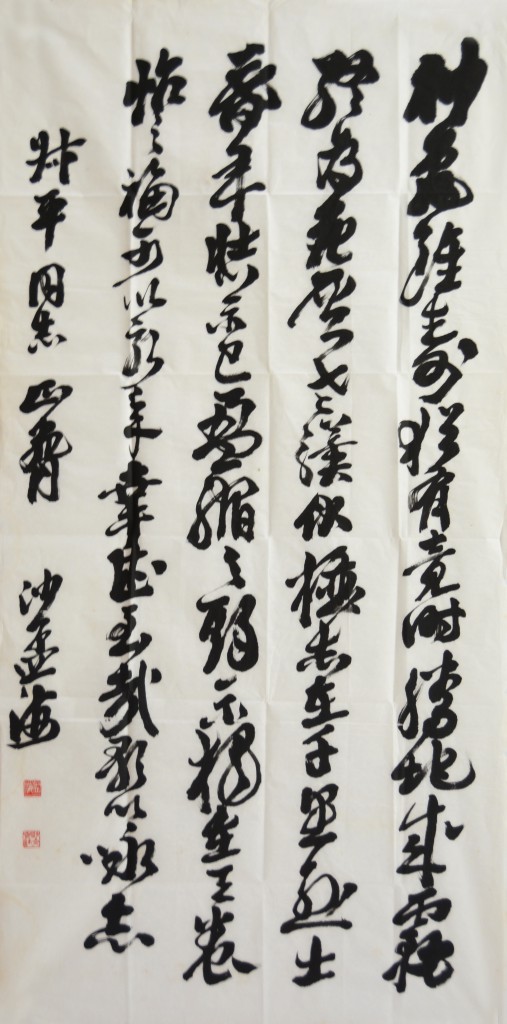 神龜雖壽猶有竟時騰蛇成霧
終為老驥伏櫪志在千里烈士
暮年壯心不已盈縮之期不獨在天養
怡之福可以永年幸甚至哉歌以詠志
平同志正 沙孟海